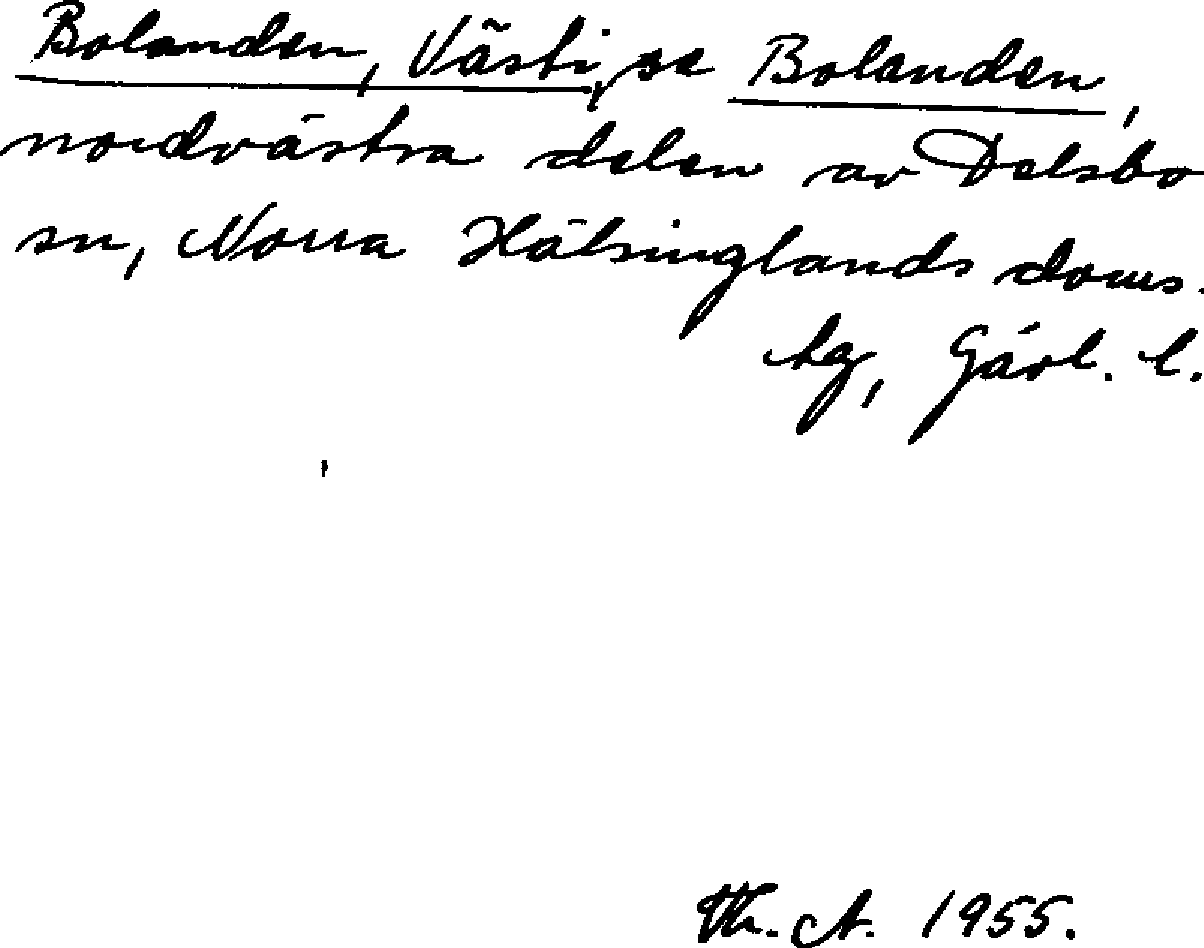 Bolanden, Västi, se Bolanden,
nordvästra delen av Delsbo
sn, Norra Hälsinglands doms.
hg, Gävl. l.
Th. A. 1955.